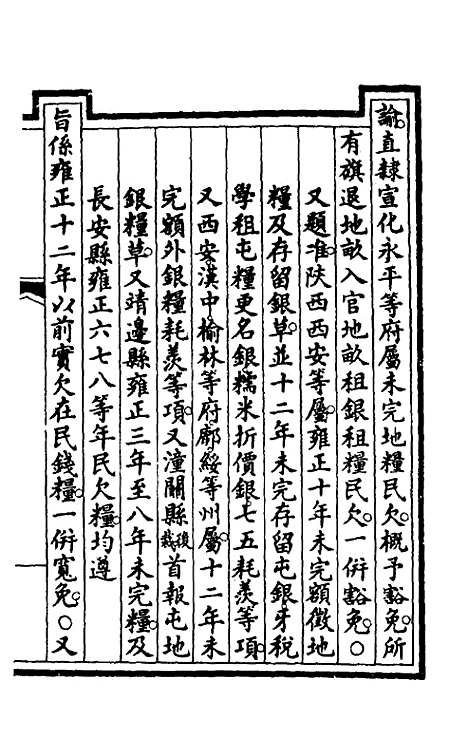 諭直隸宣化永平等府屬未完地糧民欠概予豁免所
有旗退地畝入官地畝租銀租糧民欠一併豁免○
又題准陝西西安等屬雍正十年未完額徵地
糧及存留銀草並十二年未完存留屯銀牙稅
學租屯糧更名銀糯米折價銀七五耗羨等項
又西安漢中榆林等府鄜綏等州屬十二年未
完額外銀糧耗羨等項又潼關縣後裁首報屯地
銀糧草又靖邊縣雍正三年至八年未完糧及
長安縣雍正六七八等年民欠糧均遵
旨係雍正十二年以前實欠在民錢糧一併寬免○又